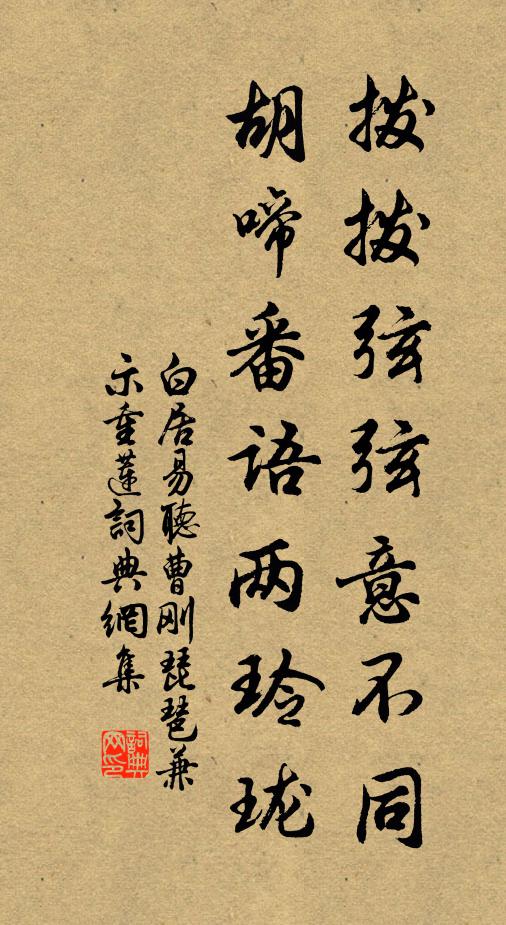 拨拨弦弦意不同
胡啼番语两玲珑
白居易聽曹刚琵琶兼
示重蓮詞典網集
詞典
网印